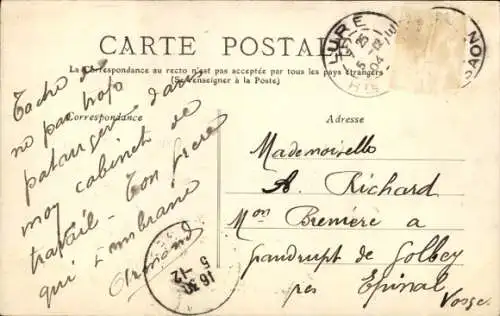 CARTE POSTALE
La Correspondance au recto n'est pas acceptée par tous les pays étrangers
(Se renseigner à la Poste)
Correspondance
Adresse
Tache de
ne pas trop
patauger dans
mon cabinet de
travail - Ton frère
qui t'embrasse
Armand
Mademoiselle
A. Richard
Mon Bremère a
Golbey
près Epinal
Vosges
LURE
25
5 -12
04
16 30
5 -12